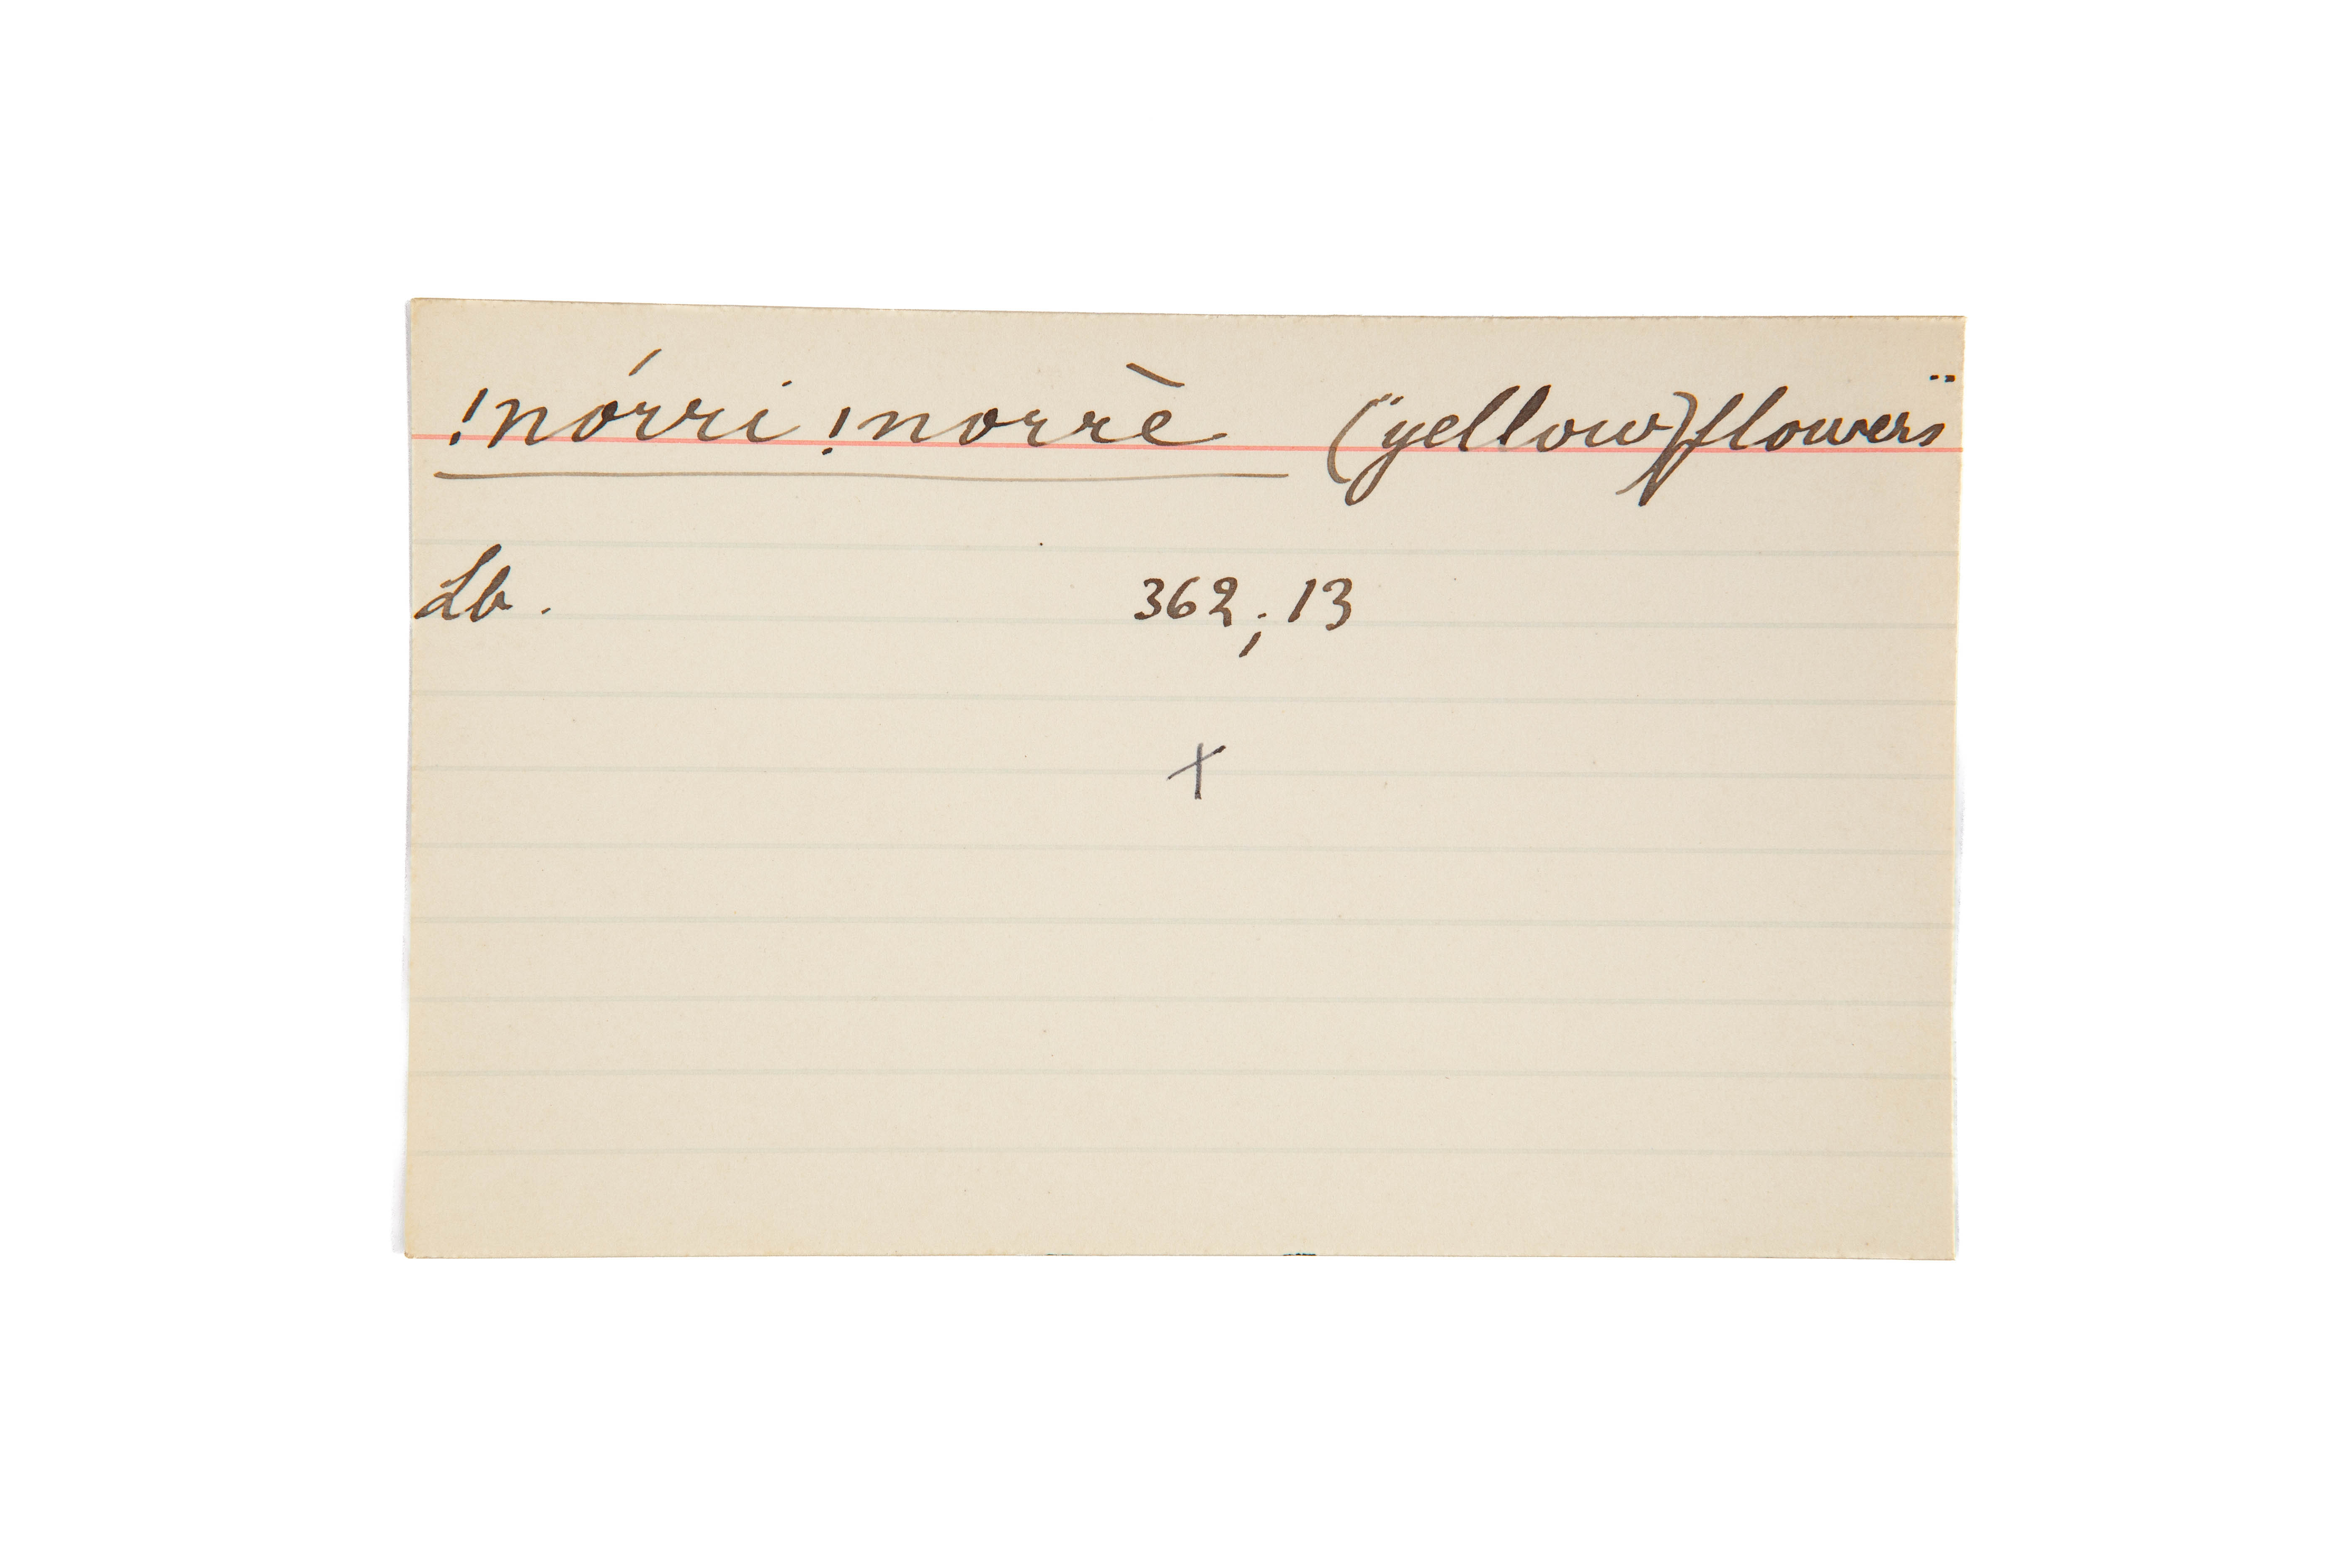 !nórri !norrè ("yellow) flowers"
Lb. 362; 13
+